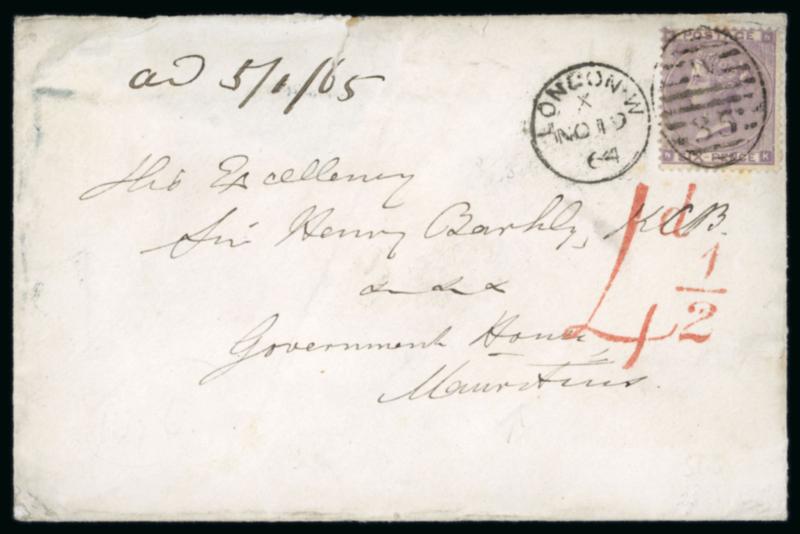 POSTAGE
ad 5/1/65
LONDON·W
X
NO 19
64
85
N SIX·PENCE K
His Excellency
Sir Henry Barkly, KCB.
&c &c &c
4d 1/2
Government House,
Mauritius.